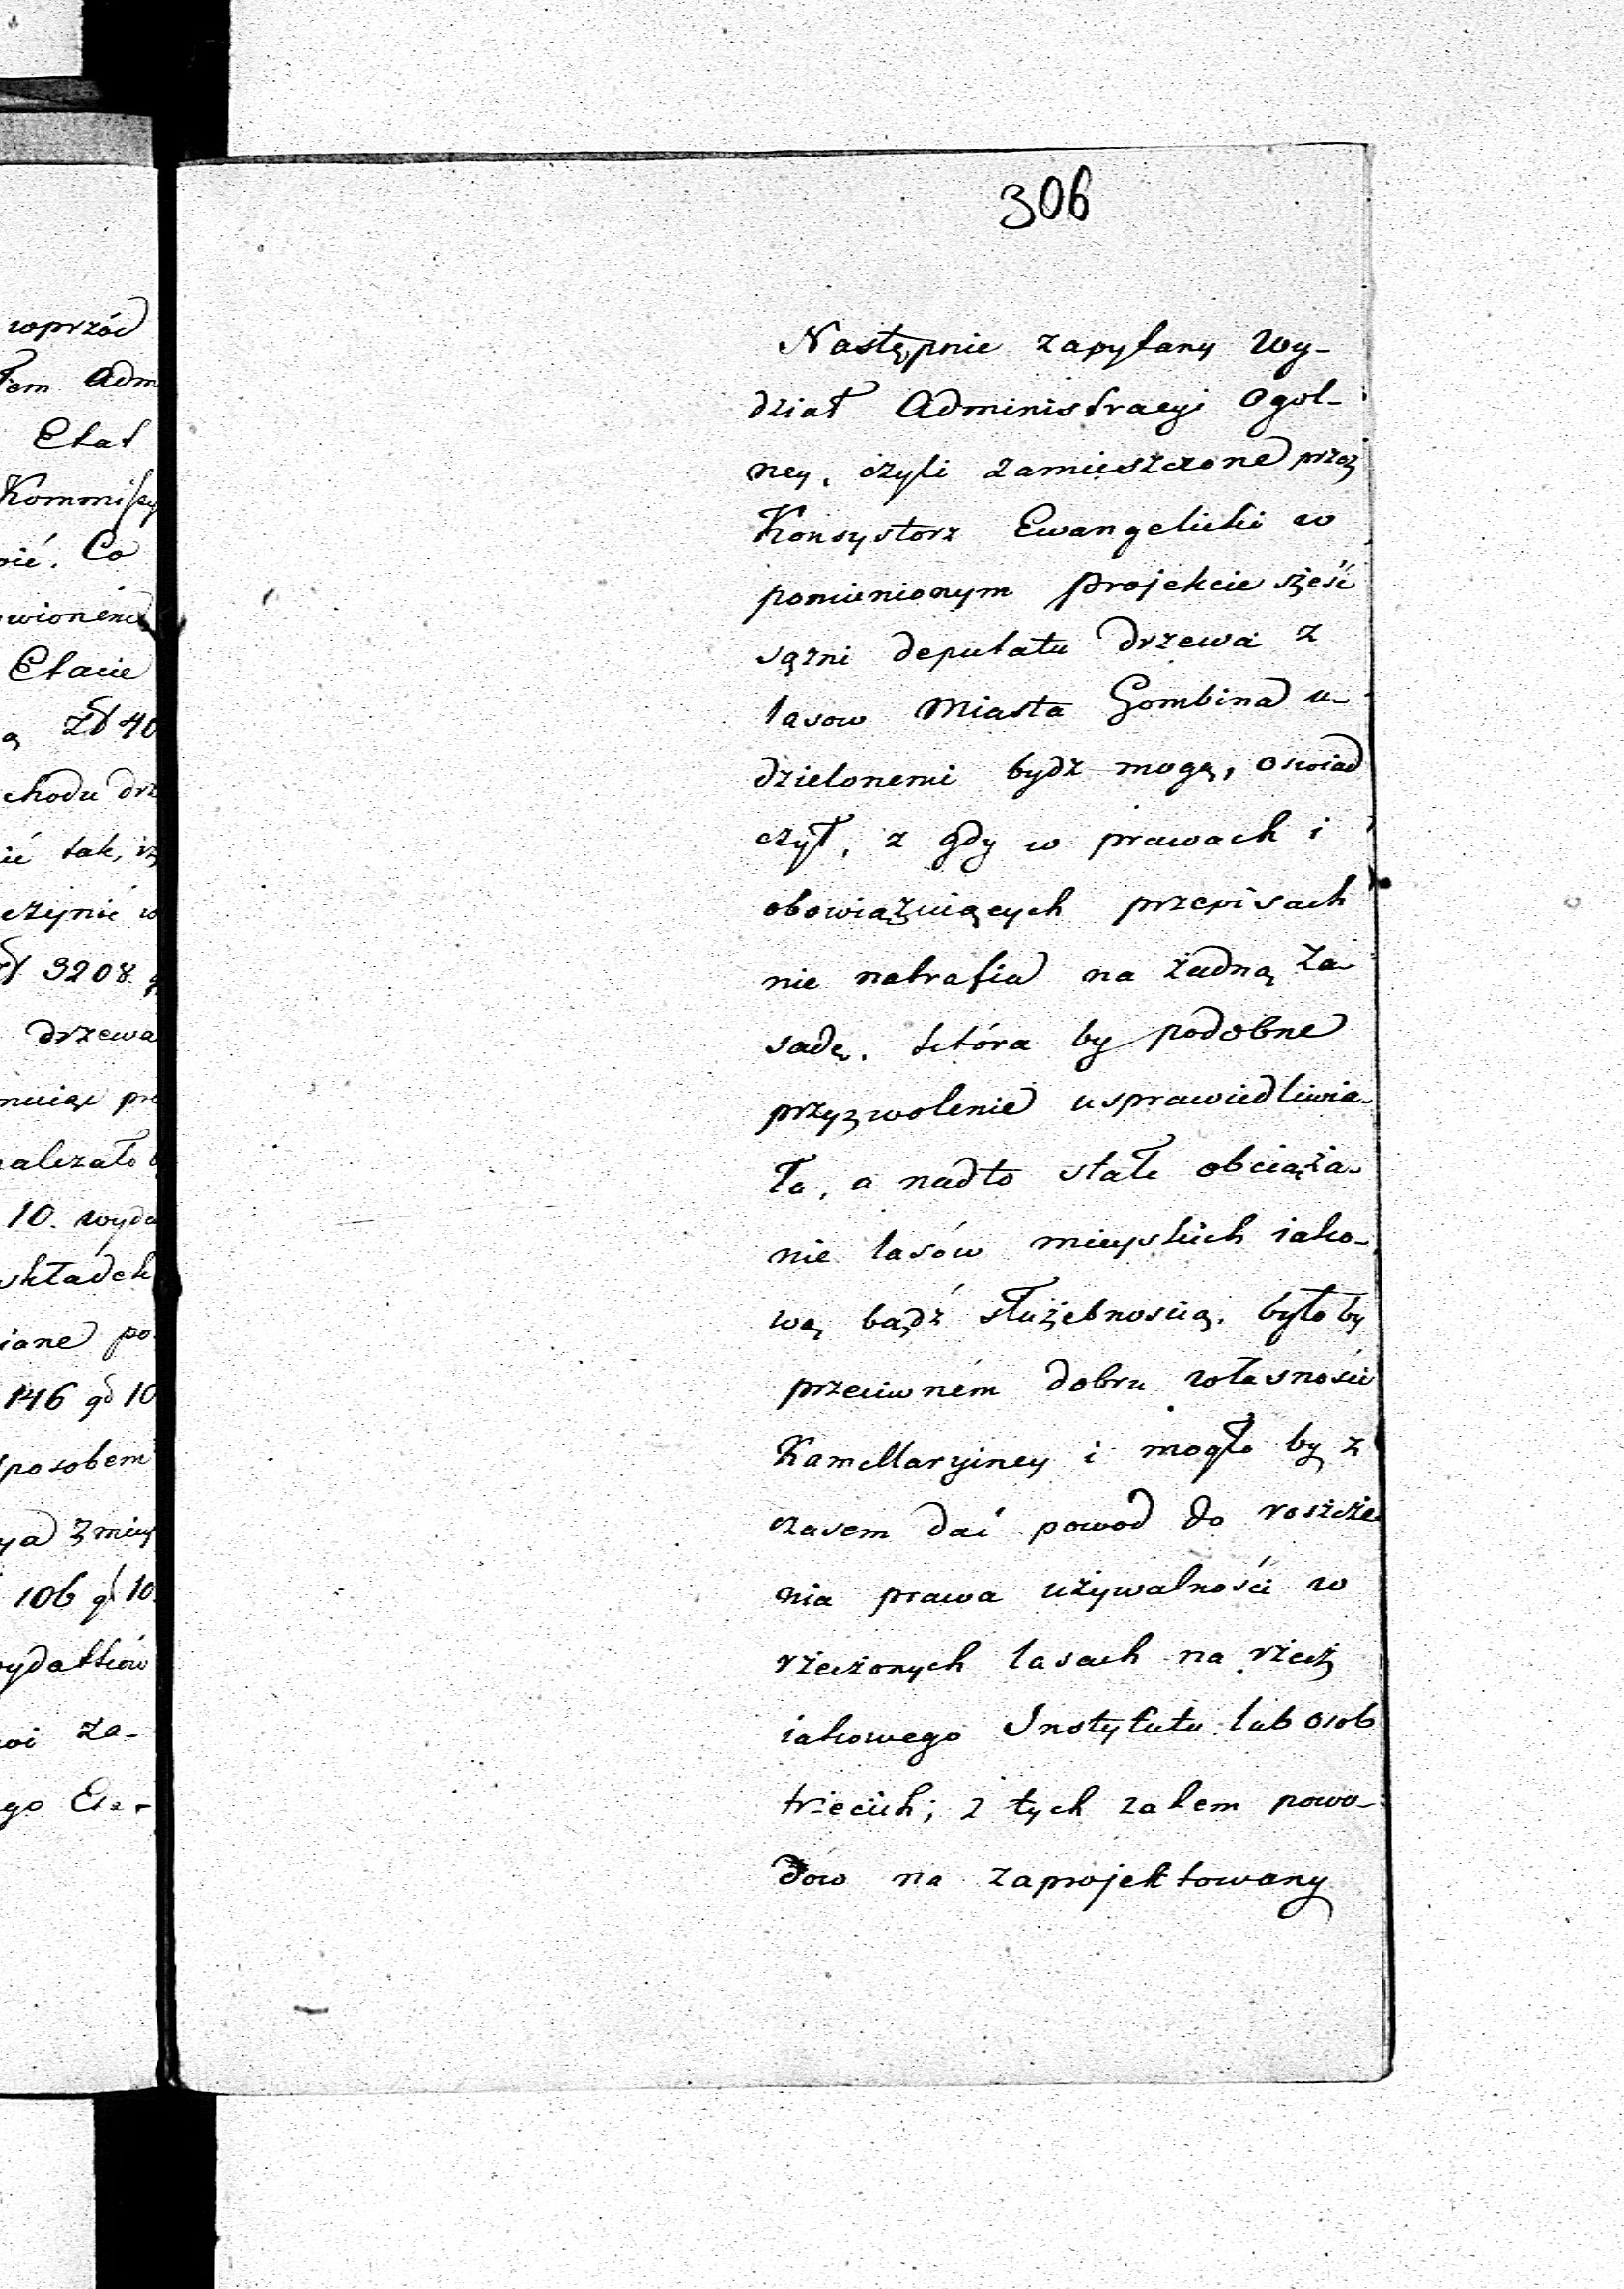 306
Następnie zapytany Wy-
dział Administracyi Ogol-
ney, czyli zamieszczone przez
Konsystorz Ewangelicki w
pomienionym projekcie sześć
sążni deputatu drzewa z
lasow Miasta Gombina u-
dzielonemi bydź mogą, oswiad
czył, z gdy w prawach i
obowiązuiących przepisach
nie natrafia na żadną za-
sadę, która by podobne
przyzwolenie usprawiedliwia-
ła, a nadto stałe obciąża-
nie lasów mieyskich iako-
wą bądź służebnoscią, było by
przeciwném dobru własności
Kamellaryiney i mogło by z
czasem dać powod do roszcze
nia prawa używalności w
rzeczonych lasach na rzecz
iakowego Instytutu lub osob
trzecich; z tych zatem powo-
dow na zaprojektowany
wprzód
łem Adm
Etat
Kommissy
Co
Etacie
zł 40
chodu drz
tak, iż
3208
drzewa
10. wyda
składek
146 gr 10
sposobem
106 gr 10
za-